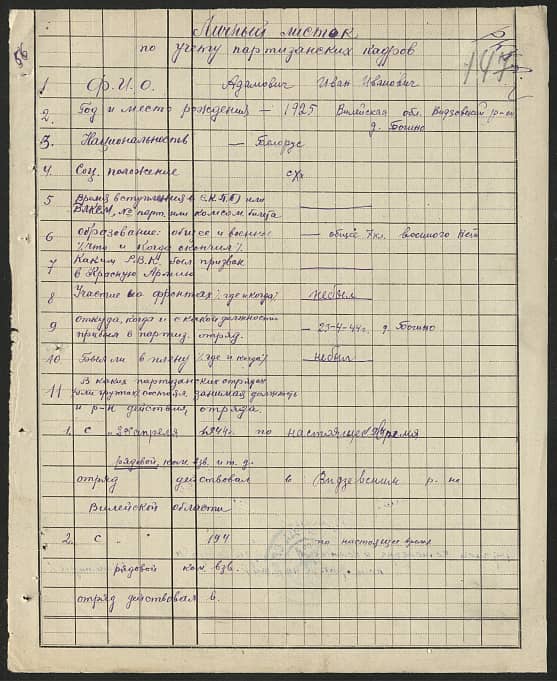 Личный листок
по учету партизанских кадров
147
1 Ф.И.О. Адамович Иван Иванович
2. Год и место рождения — 1925 Вилейская обл. Видзовский р-н
д. Богино
3. Национальность — Белорус
4. Соц. положение с/х
5 Время вступления в ВКП(б) или
ВЛКСМ, № парт. или комсом. билета
6 образование: общее и военное — общее 7 кл. военного нет
что и когда окончил
7 Каким Р.В.К. был призван
в Красную Армию
8 Участие на фронтах где и когда небыл
9 откуда, когда и с какой должности
прибыл в партиз. отряд. — 25-4-44г. д. Богино
10 Был ли в плену где и когда небыл
11 В каких партизанских отрядах
или группах состоял, занимая должность
и р-н действия, отряда.
1. С апреля 1944г. по настоящее время
рядовой, ком. взв. и т. д.
отряд действовал в Видзевским р-не
Вилейской области
2. С " " 194 по настоящее время
рядовой ком. взв.
отряд действовал в.